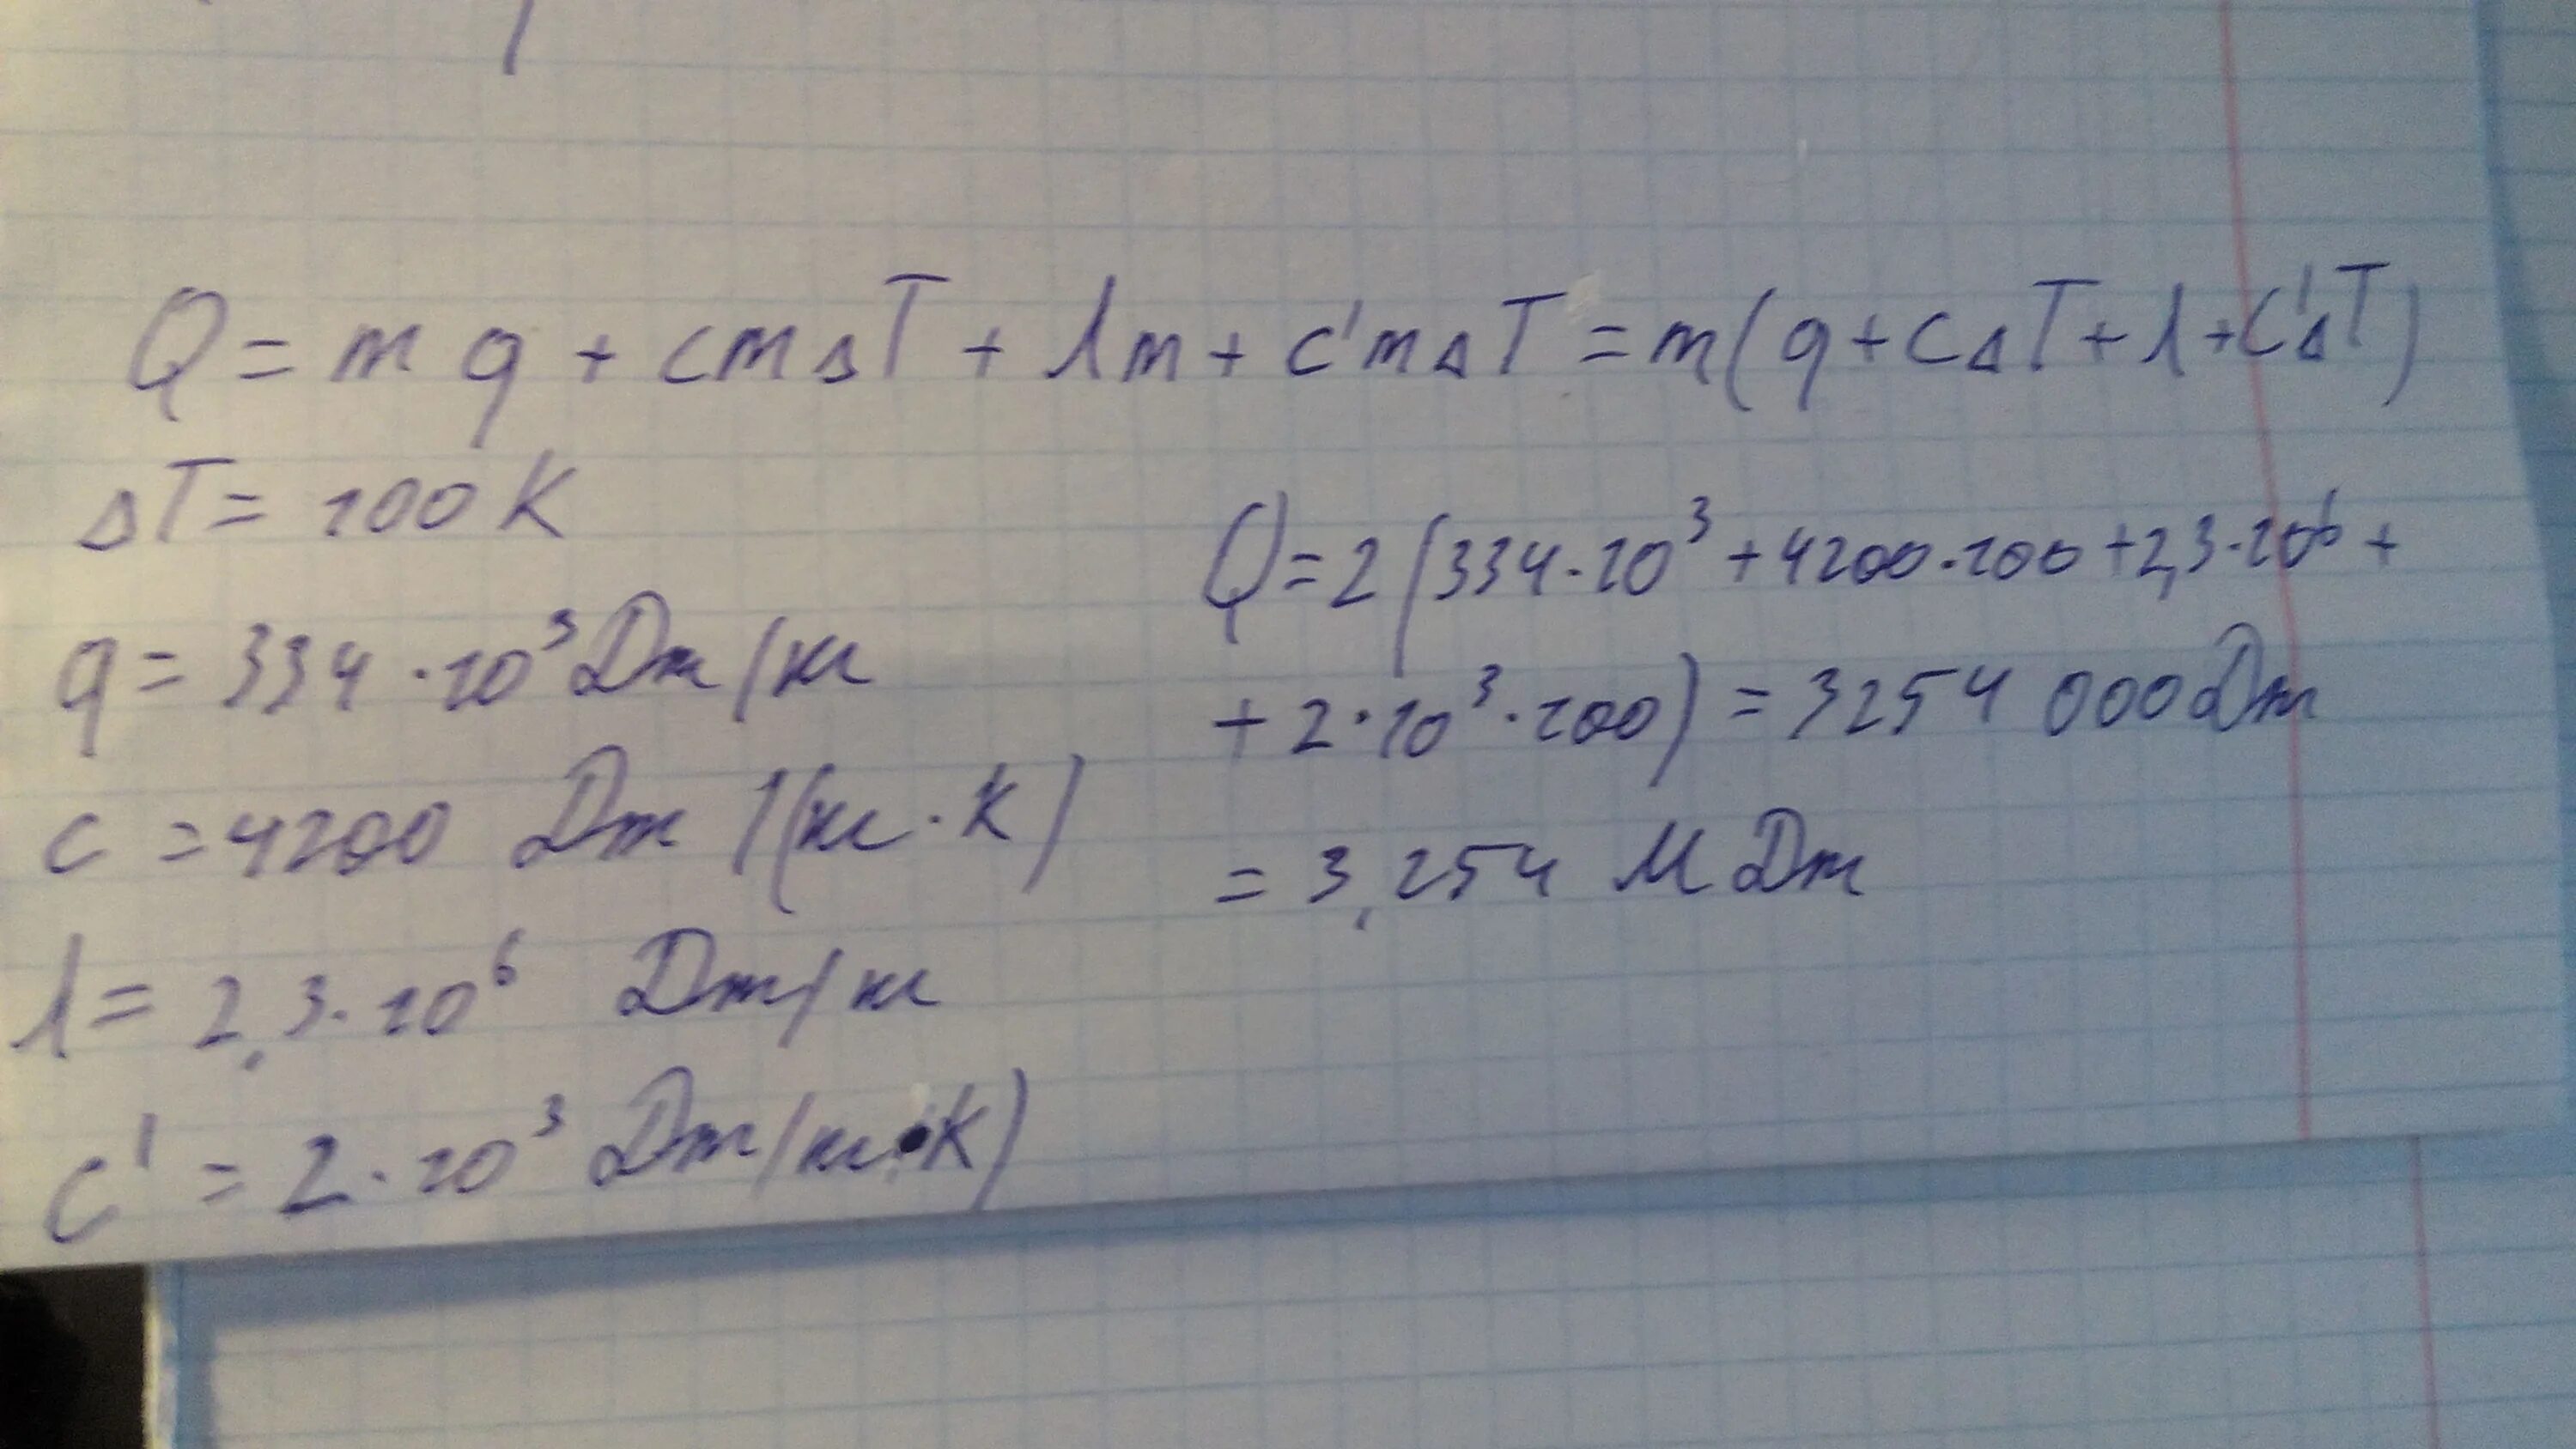 Q = mq + cmΔT + λm + c'mΔT = m(q + cΔT + λ + c'ΔT)
ΔT = 100 K
q = 334 · 10³ Дж/кг
c = 4200 Дж/(кг · К)
λ = 2,3 · 10⁶ Дж/кг
c' = 2 · 10³ Дж/кг·К)
Q = 2 (334 · 10³ + 4200 · 100 + 2,3 · 10⁶ +
+ 2 · 10³ · 100) = 3254 000 Дж
= 3,254 М Дж